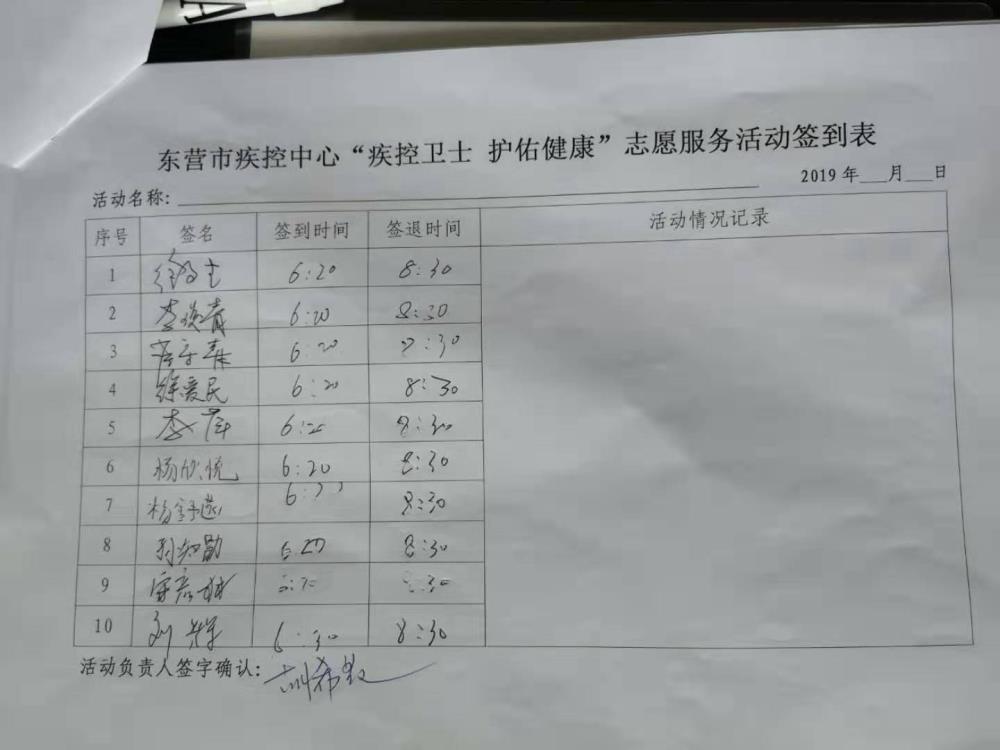 东营市疾控中心“疾控卫士 护佑健康”志愿服务活动签到表
活动名称： 2019年 月 日
序号 签名 签到时间 签退时间 活动情况记录
1 6:20 8:30
2 李焕青 6:20 8:30
3 6:20 :30
4 徐爱民 6:20 8:30
5 李萍 6:20 8:30
6 杨欣悦 6:20 8:30
7 杨舒 8:30
8 6:20 8:30
9 :30
10 刘辉 6:30 8:30
活动负责人签字确认：